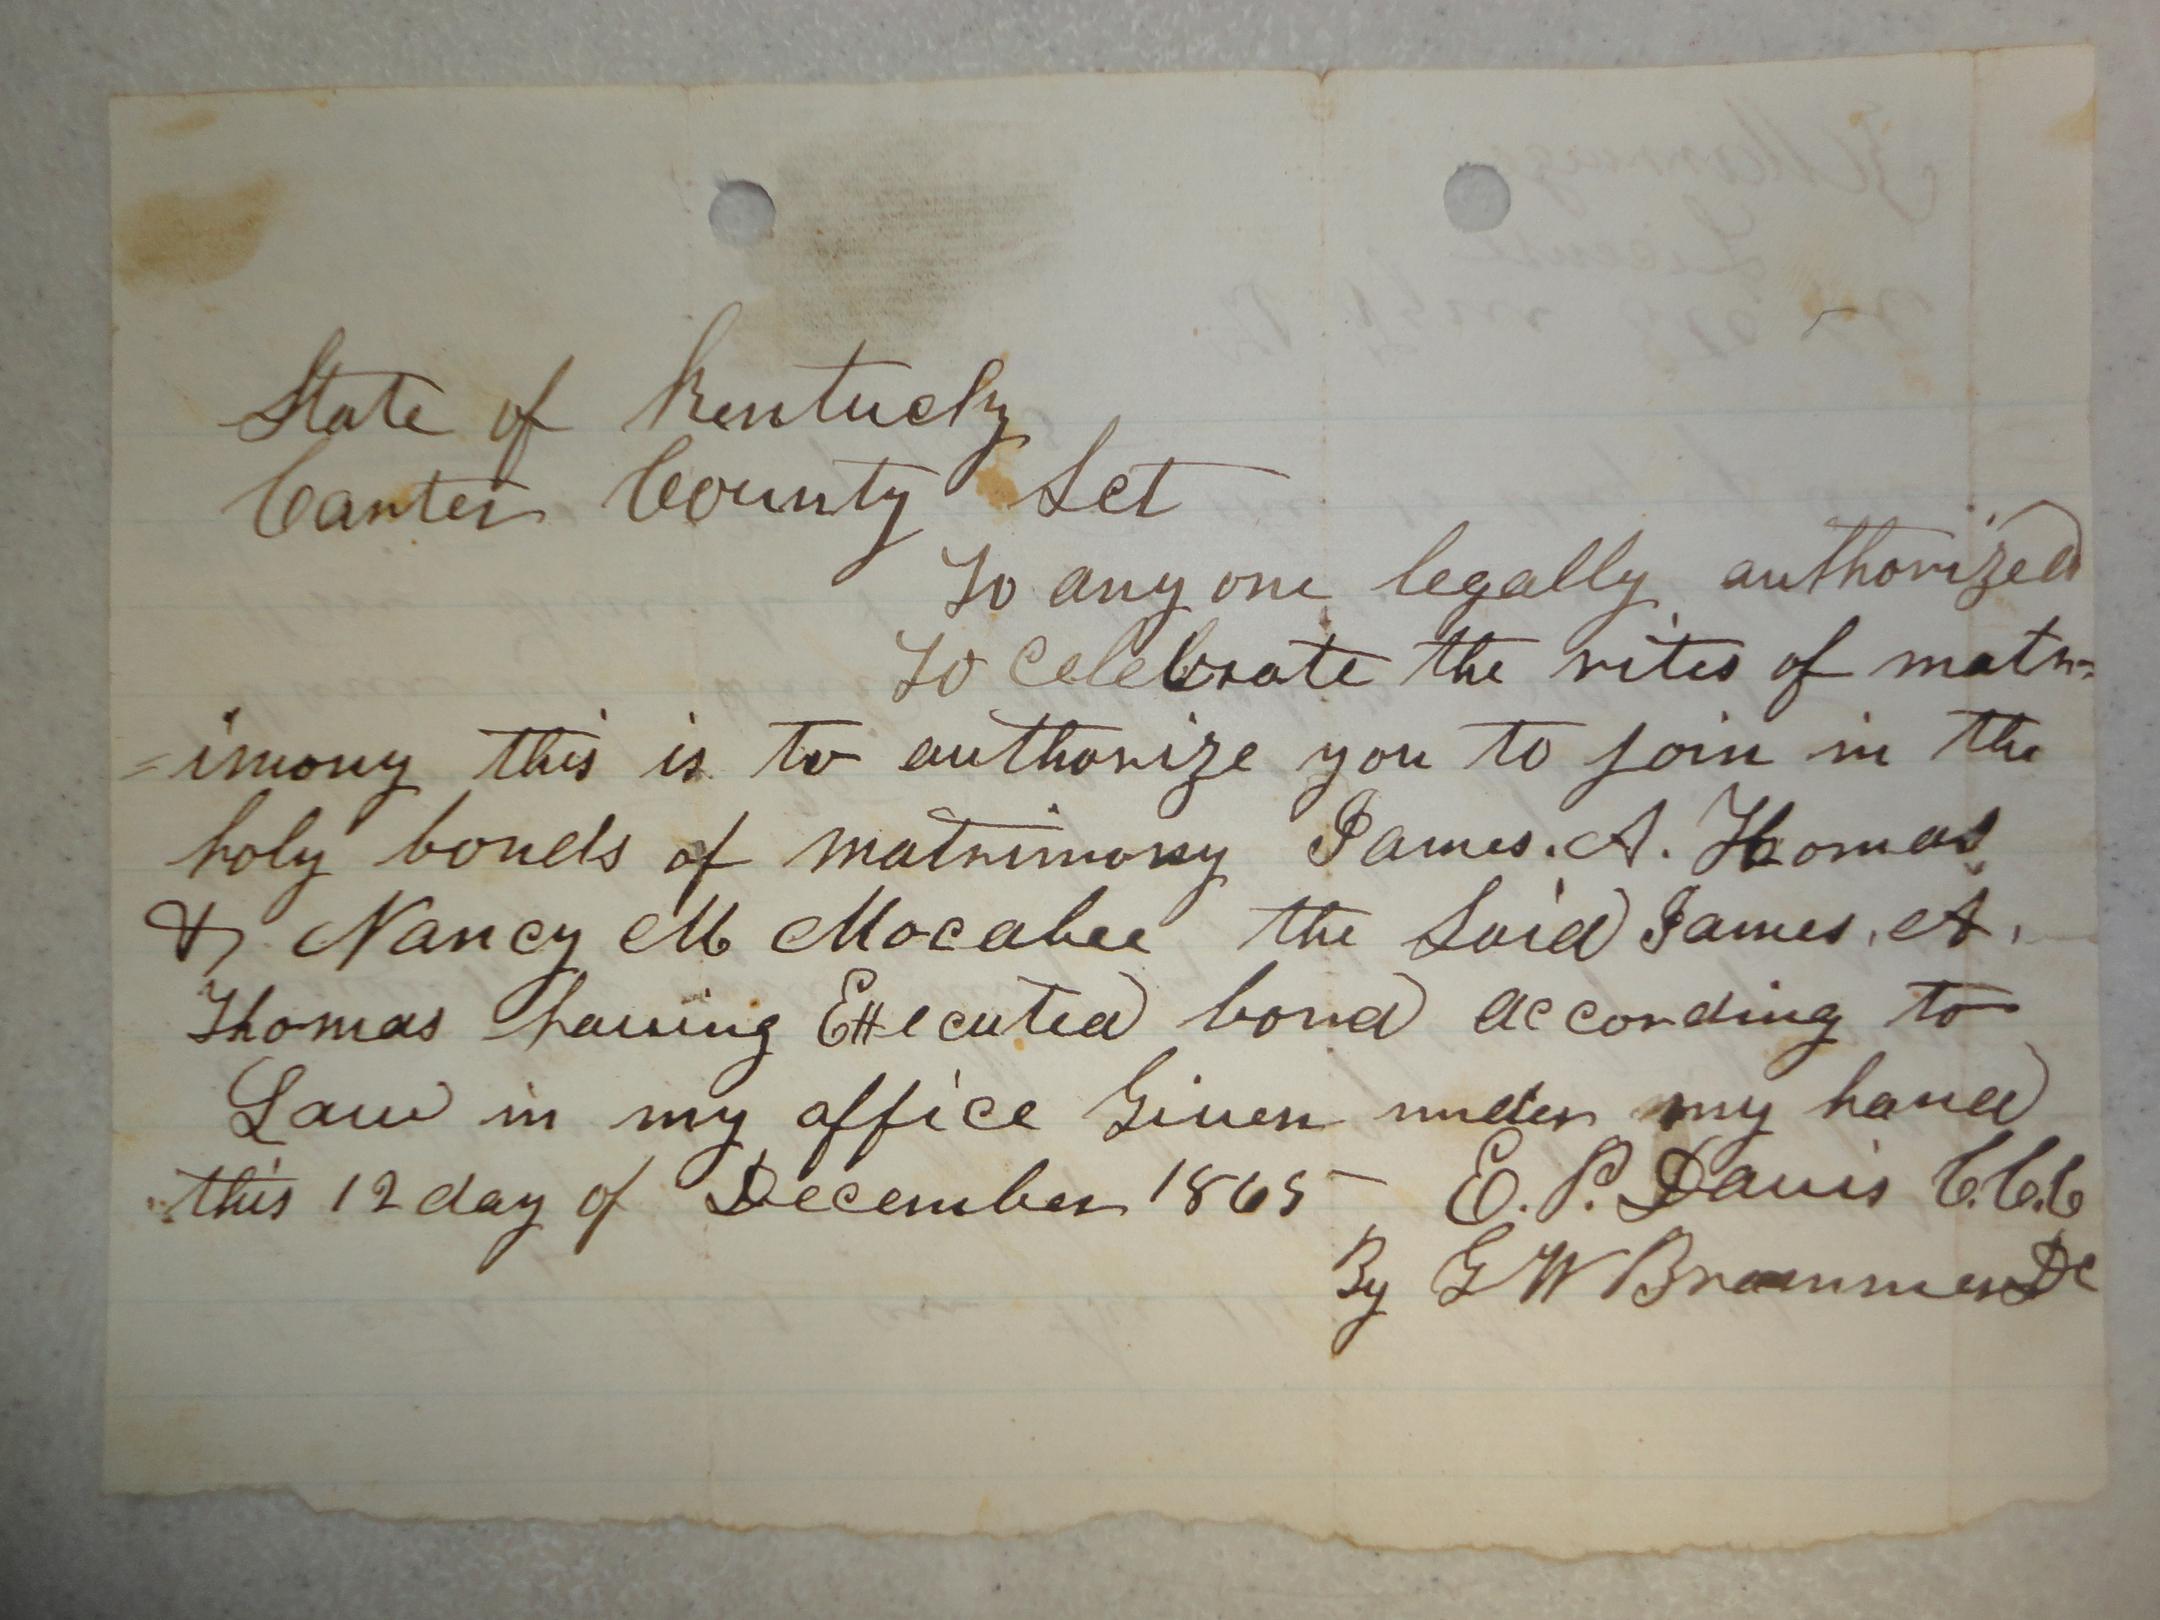 State of Kentucky
Carter County Sct
To any one legally authorized
to celebrate the rites of matr=
=imony this is to authorize you to join in the
holy bonds of matrimony James. A. Thomas
& Nancy M Mocabee the Said James. A.
Thomas having Executed bond according to
Law in my office Given under my hand
this 12 day of December 1865 — E. P. Davis C.C.C
By G W Brammer Dc